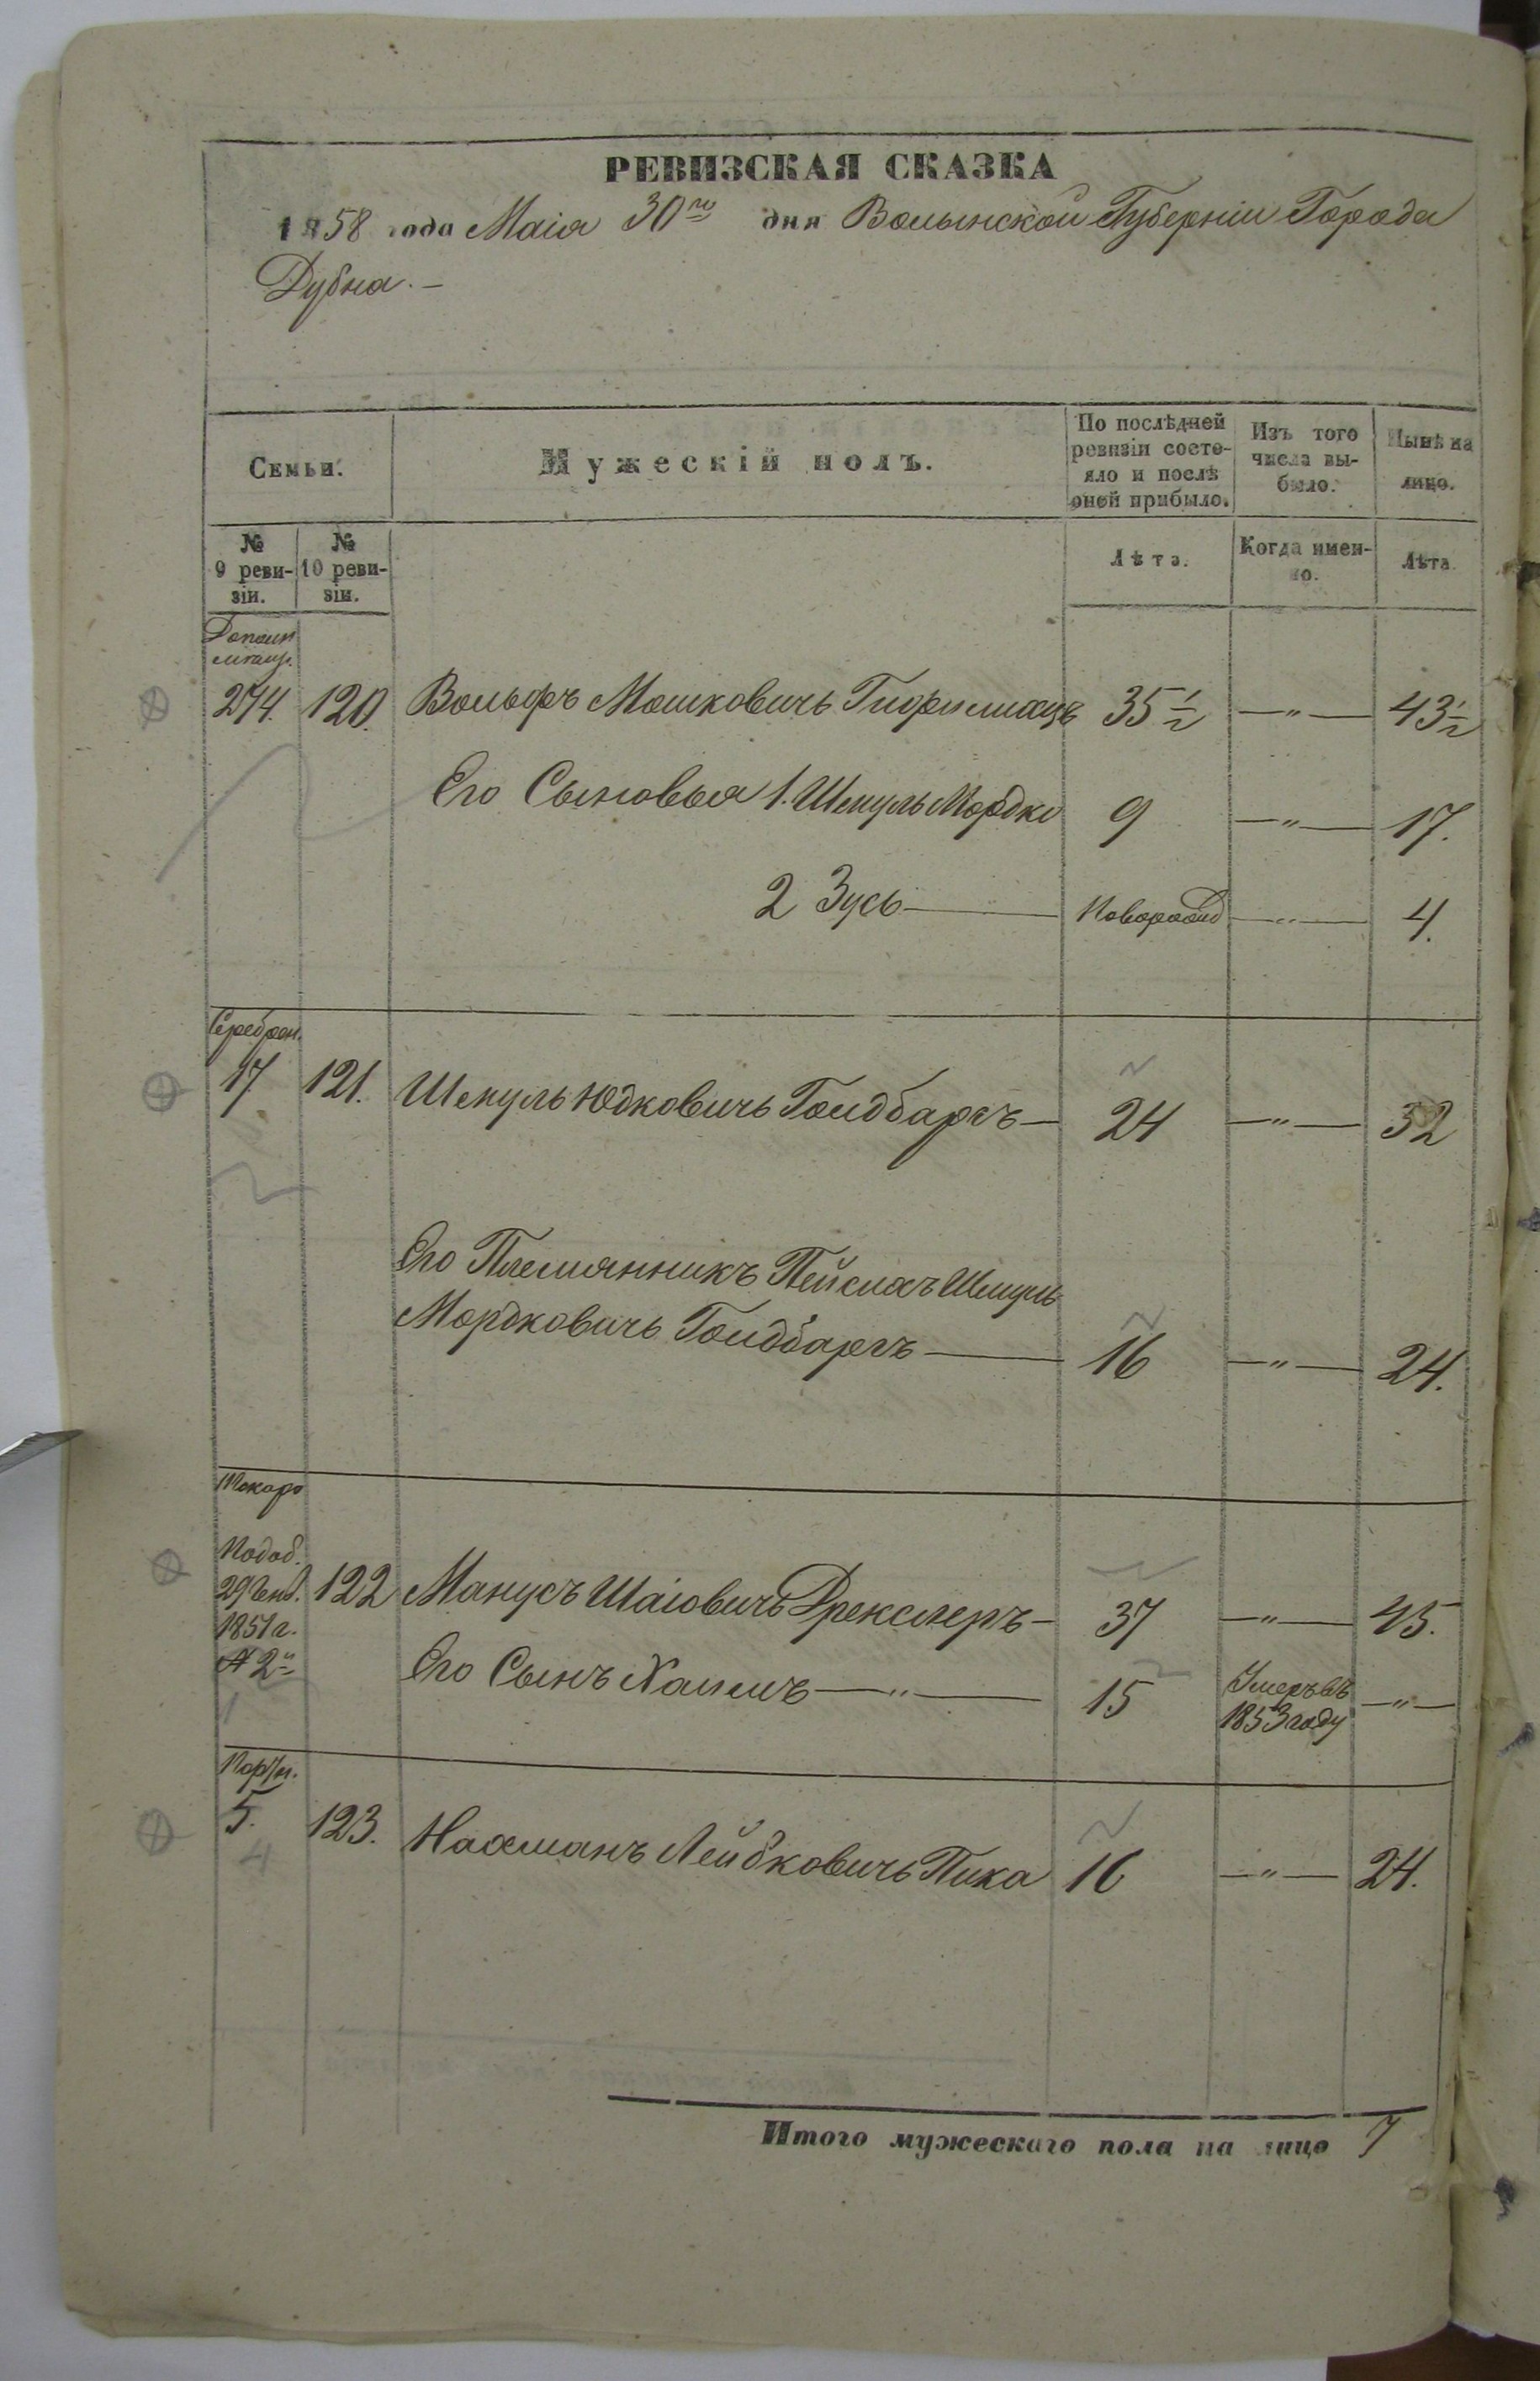 РЕВИЗСКАЯ СКАЗКА
1858 года Маія 30го дня Волынской Губерніи Города
Дубна. —
Семьи.
Мужескій полъ.
По послѣдней ревизіи состояло и послѣ оной прибыло.
Изъ того числа выбыло.
Нынѣ на лицо.
№ 9 ревизіи.
№ 10 ревизіи.
Лѣта.
Когда именно.
Лѣта.
274. 120. Вольфъ Мошковичъ 35 1/2 —"— 43 1/2
Его Сыновья 1. Шмуль Мордко 9 —"— 17.
2 Зусь — Новорожд —"— 4.
Серебрян.
17 121. Шмуль Юдковичъ Голдбаргъ — 24 —"— 32
Его Племянникъ Пейсахъ Шмуль
Мордковичъ Голдбаргъ — 16 —"— 24.
Токарь
29 1851 г. № 2й 122 Манусъ Шаіовичъ Дрекслеръ — 37 —"— 45.
Его Сынъ Хаимъ —"— 15 Умеръ въ 1853 году —"—
Портн.
5. 123. Нахманъ Лейбковичъ Пика 16 —"— 24.
4
Итого мужескаго пола на лицо 7